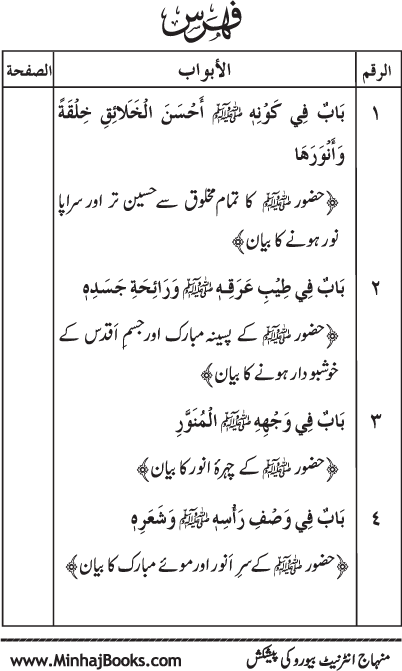 فہرس
الرقم الأبواب الصفحة
١ بَابٌ فِي كَوْنِهٖ ﷺ أَحْسَنَ الْخَلَائِقِ خِلْقَةً
وَأَنْوَرَهَا
﴿حضور ﷺ کا تمام مخلوق سے حسین تر اور سراپا
نور ہونے کا بیان﴾
٢ بَابٌ فِي طِيْبِ عَرَقِهٖ ﷺ وَرَائِحَةِ جَسَدِهٖ
﴿حضور ﷺ کے پسینہ مبارک اور جسمِ اَقدس کے
خوشبودار ہونے کا بیان﴾
٣ بَابٌ فِي وَجْهِهِ ﷺ الْمُنَوَّرِ
﴿حضور ﷺ کے چہرۂ انور کا بیان﴾
٤ بَابٌ فِي وَصْفِ رَأْسِهٖ ﷺ وَشَعَرِهٖ
﴿حضور ﷺ کے سرِ اَنور اور موئے مبارک کا بیان﴾
منہاج انٹرنیٹ بیورو کی پیشکش www.MinhajBooks.com